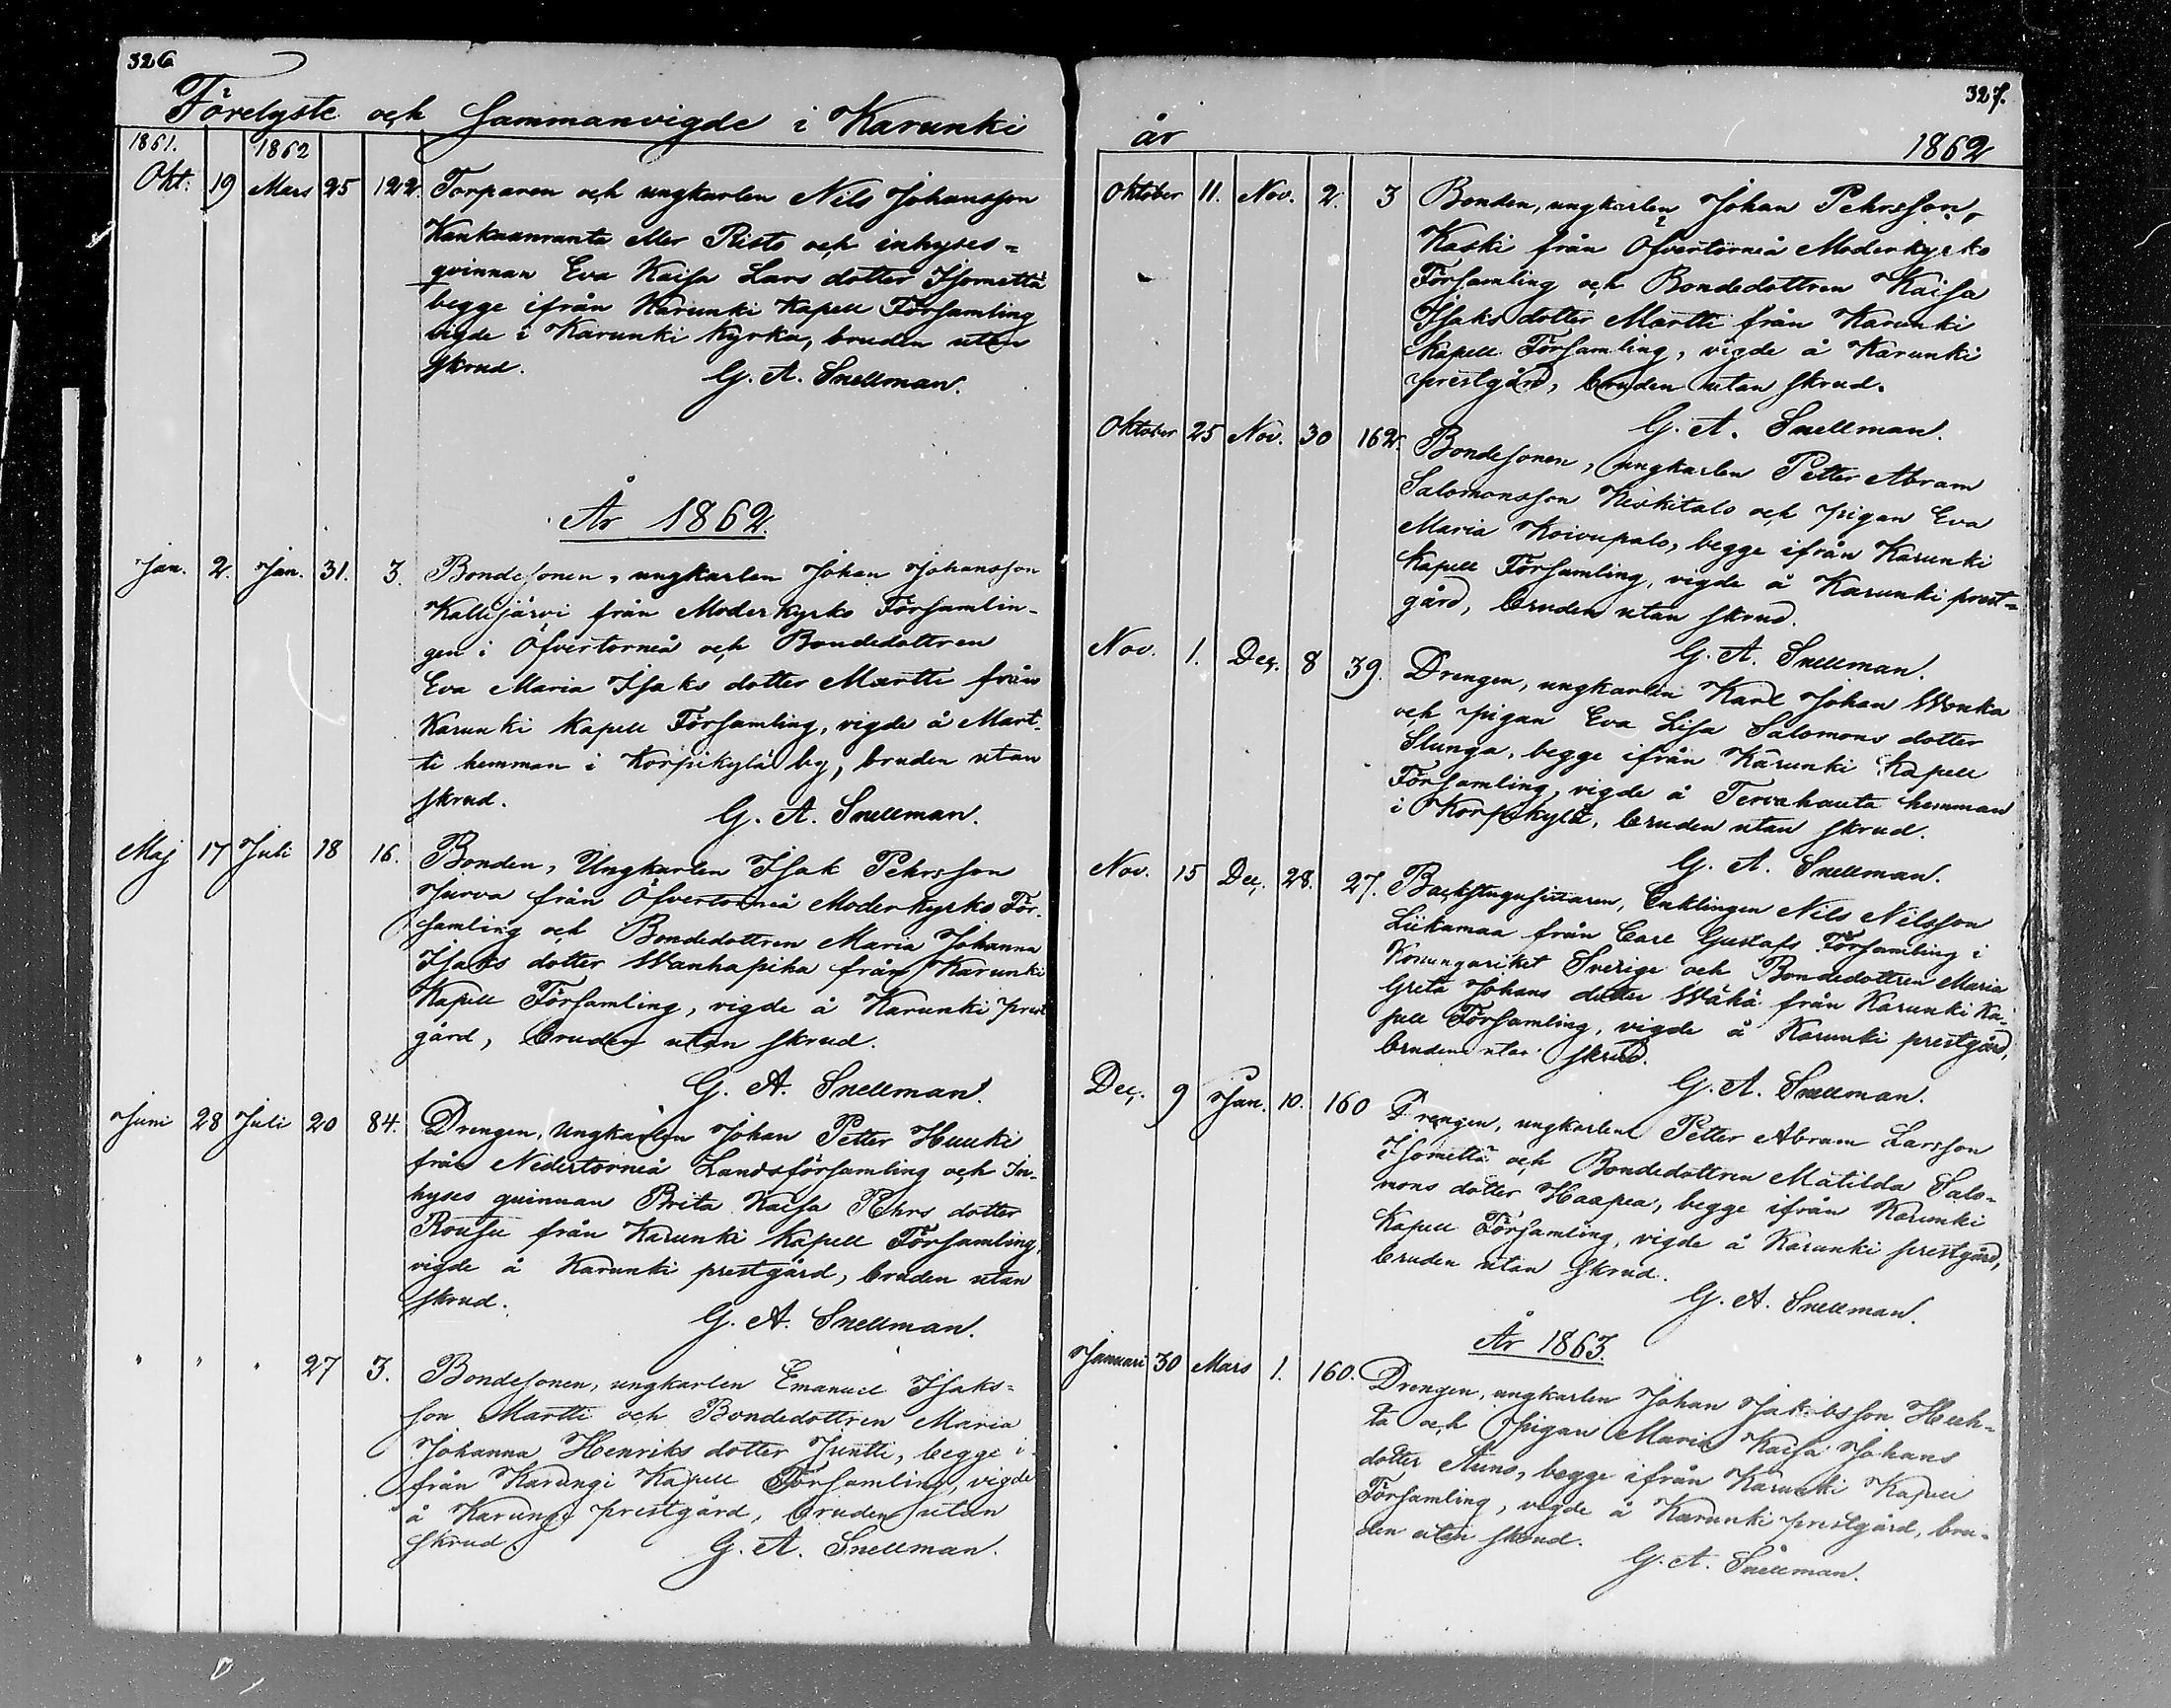 326
Förelyste och Sammanvigde i Karunki
1861. 1862
Okt. 19 Mars 25 122. Torparen och ungkarlen Nils Johansson
Kankaanranta eller Risto och inhyses-
qvinnan Eva Kaisa Lars dotter Isomettä
begge ifrån Karunki Kapell Församling
vigde i Karunki Kyrka, bruden utan
skrud. G. A. Snellman.
År 1862.
Jan. 2. Jan. 31. 3. Bondesonen, ungkarlen Johan Johansson
Kallijärvi från Moderkyrko Församlin-
gen i Öfvertorneå och Bondedottren
Eva Maria Isaks dotter Martti från
Karunki Kapell Församling, vigde å Mart-
ti hemman i Korpikylä by, bruden utan
skrud. G. A. Snellman.
Maj 17 Juli 18 16. Bonden, Ungkarlen Isak Pehrsson
Jurva från Öfvertorneå Moderkyrko För-
samling och Bondedottren Maria Johanna
Isaks dotter Wanhapiha från Karunki
Kapell Församling, vigde å Karunki prest
gård, bruden utan skrud.
G. A. Snellman.
Juni 28 Juli 20 84. Drengen, Ungkarlen Johan Petter Huuki
från Nedertorneå Landsförsamling och In-
hyses qvinnan Brita Kaisa Pehrs dotter
Rousu från Karunki Kapell Församling,
vigde å Karunki prestgård, bruden utan
skrud. G. A. Snellman.
" " " 27 3. Bondesonen, ungkarlen Emanuel Isaks-
son Martti och Bondedottren Maria
Johanna Henriks dotter Juntti, begge i-
från Karungi Kapell Församling, vigde
å Karungi prestgård, bruden utan
skrud. G. A. Snellman.
327.
år 1862
Oktober 11. Nov. 2. 3 Bonden, ungkarlen Johan Pehrsson
Kaski från Öfvertorneå Moderkyrko
Församling och Bondedottren Kaisa
Isaks dotter Martti från Karunki
Kapell Församling, vigde å Karunki
prestgård, bruden utan skrud.
G. A. Snellman.
Oktober 25 Nov. 30 162. Bondesonen, ungkarlen Petter Abram
Salomonsson Keskitalo och pigan Eva
Maria Koivupalo, begge ifrån Karunki
Kapell Församling, vigde å Karunki prest-
gård, bruden utan skrud.
G. A. Snellman.
Nov. 1. Dec. 8 39. Drengen, ungkarlen Karl Johan Wonka
och pigan Eva Lisa Salomons dotter
Slunga, begge ifrån Karunki Kapell
Församling, vigde å Tervahauta hemman
i Korpikylä, bruden utan skrud.
G. A. Snellman.
Nov. 15 Dec. 28. 27. Backstugusittaren, Enklingen Nils Nilsson
Liikamaa från Carl Gustafs Församling i
Konungariket Sverige och Bondedottren Maria
Greta Johans dotter Wähä från Karunki Ka-
pell Församling, vigde å Karunki prestgård,
bruden utan skrud.
G. A. Snellman.
Dec. 9 Jan. 10. 160 Drengen, ungkarlen Petter Abram Larsson
Isomettä och Bondedottren Matilda Salo-
mons dotter Haapea, begge ifrån Karunki
Kapell Församling, vigde å Karunki prestgård,
bruden utan skrud.
G. A. Snellman.
År 1863.
Januari 30 Mars 1. 160. Drengen, ungkarlen Johan Jakobsson Huh-
ta och Pigan Maria Kaisa Johans
dotter Auno, begge ifrån Karunki Kapell
Församling, vigde å Karunki prestgård, bru-
den utan skrud.
G. A. Snellman.